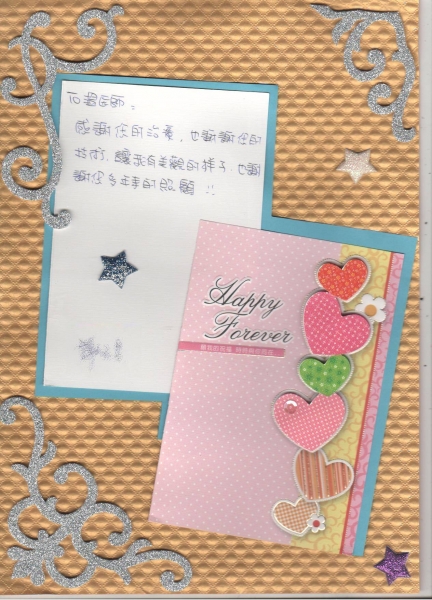 感謝您的治療,也謝謝您的
技術,讓我有美觀的樣子,也謝
謝您多年來的照顧!!
Happy
Forever